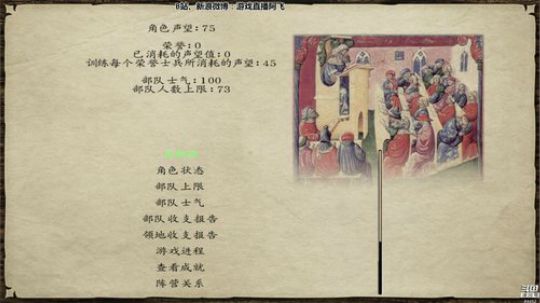 B站、新浪微博：游戏直播阿飞
角色声望:75
荣誉:0
已消耗的声望值:0
训练每个荣誉士兵所消耗的声望:45
部队士气:100
部队人数上限:73
角色状态
部队上限
部队士气
部队收支报告
领地收支报告
游戏进程
查看成就
阵营关系